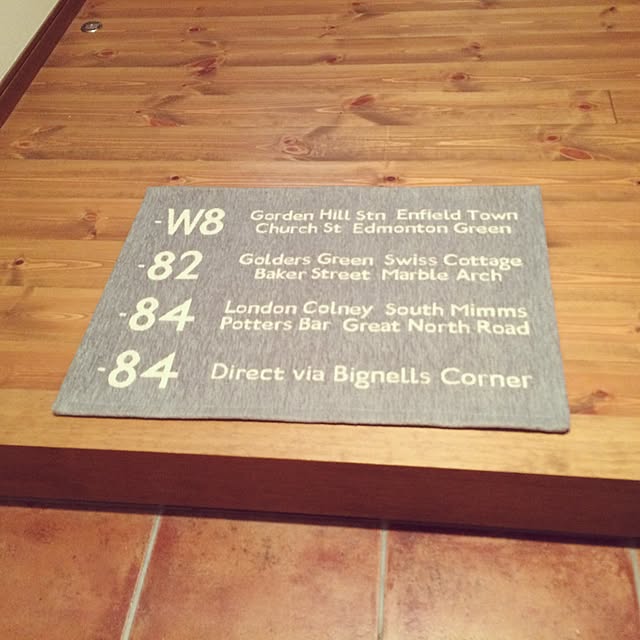 -W8 Gorden Hill Stn Enfield Town
Church St Edmonton Green
-82 Golders Green Swiss Cottage
Baker Street Marble Arch
-84 London Colney South Mimms
Potters Bar Great North Road
-84 Direct via Bignells Corner